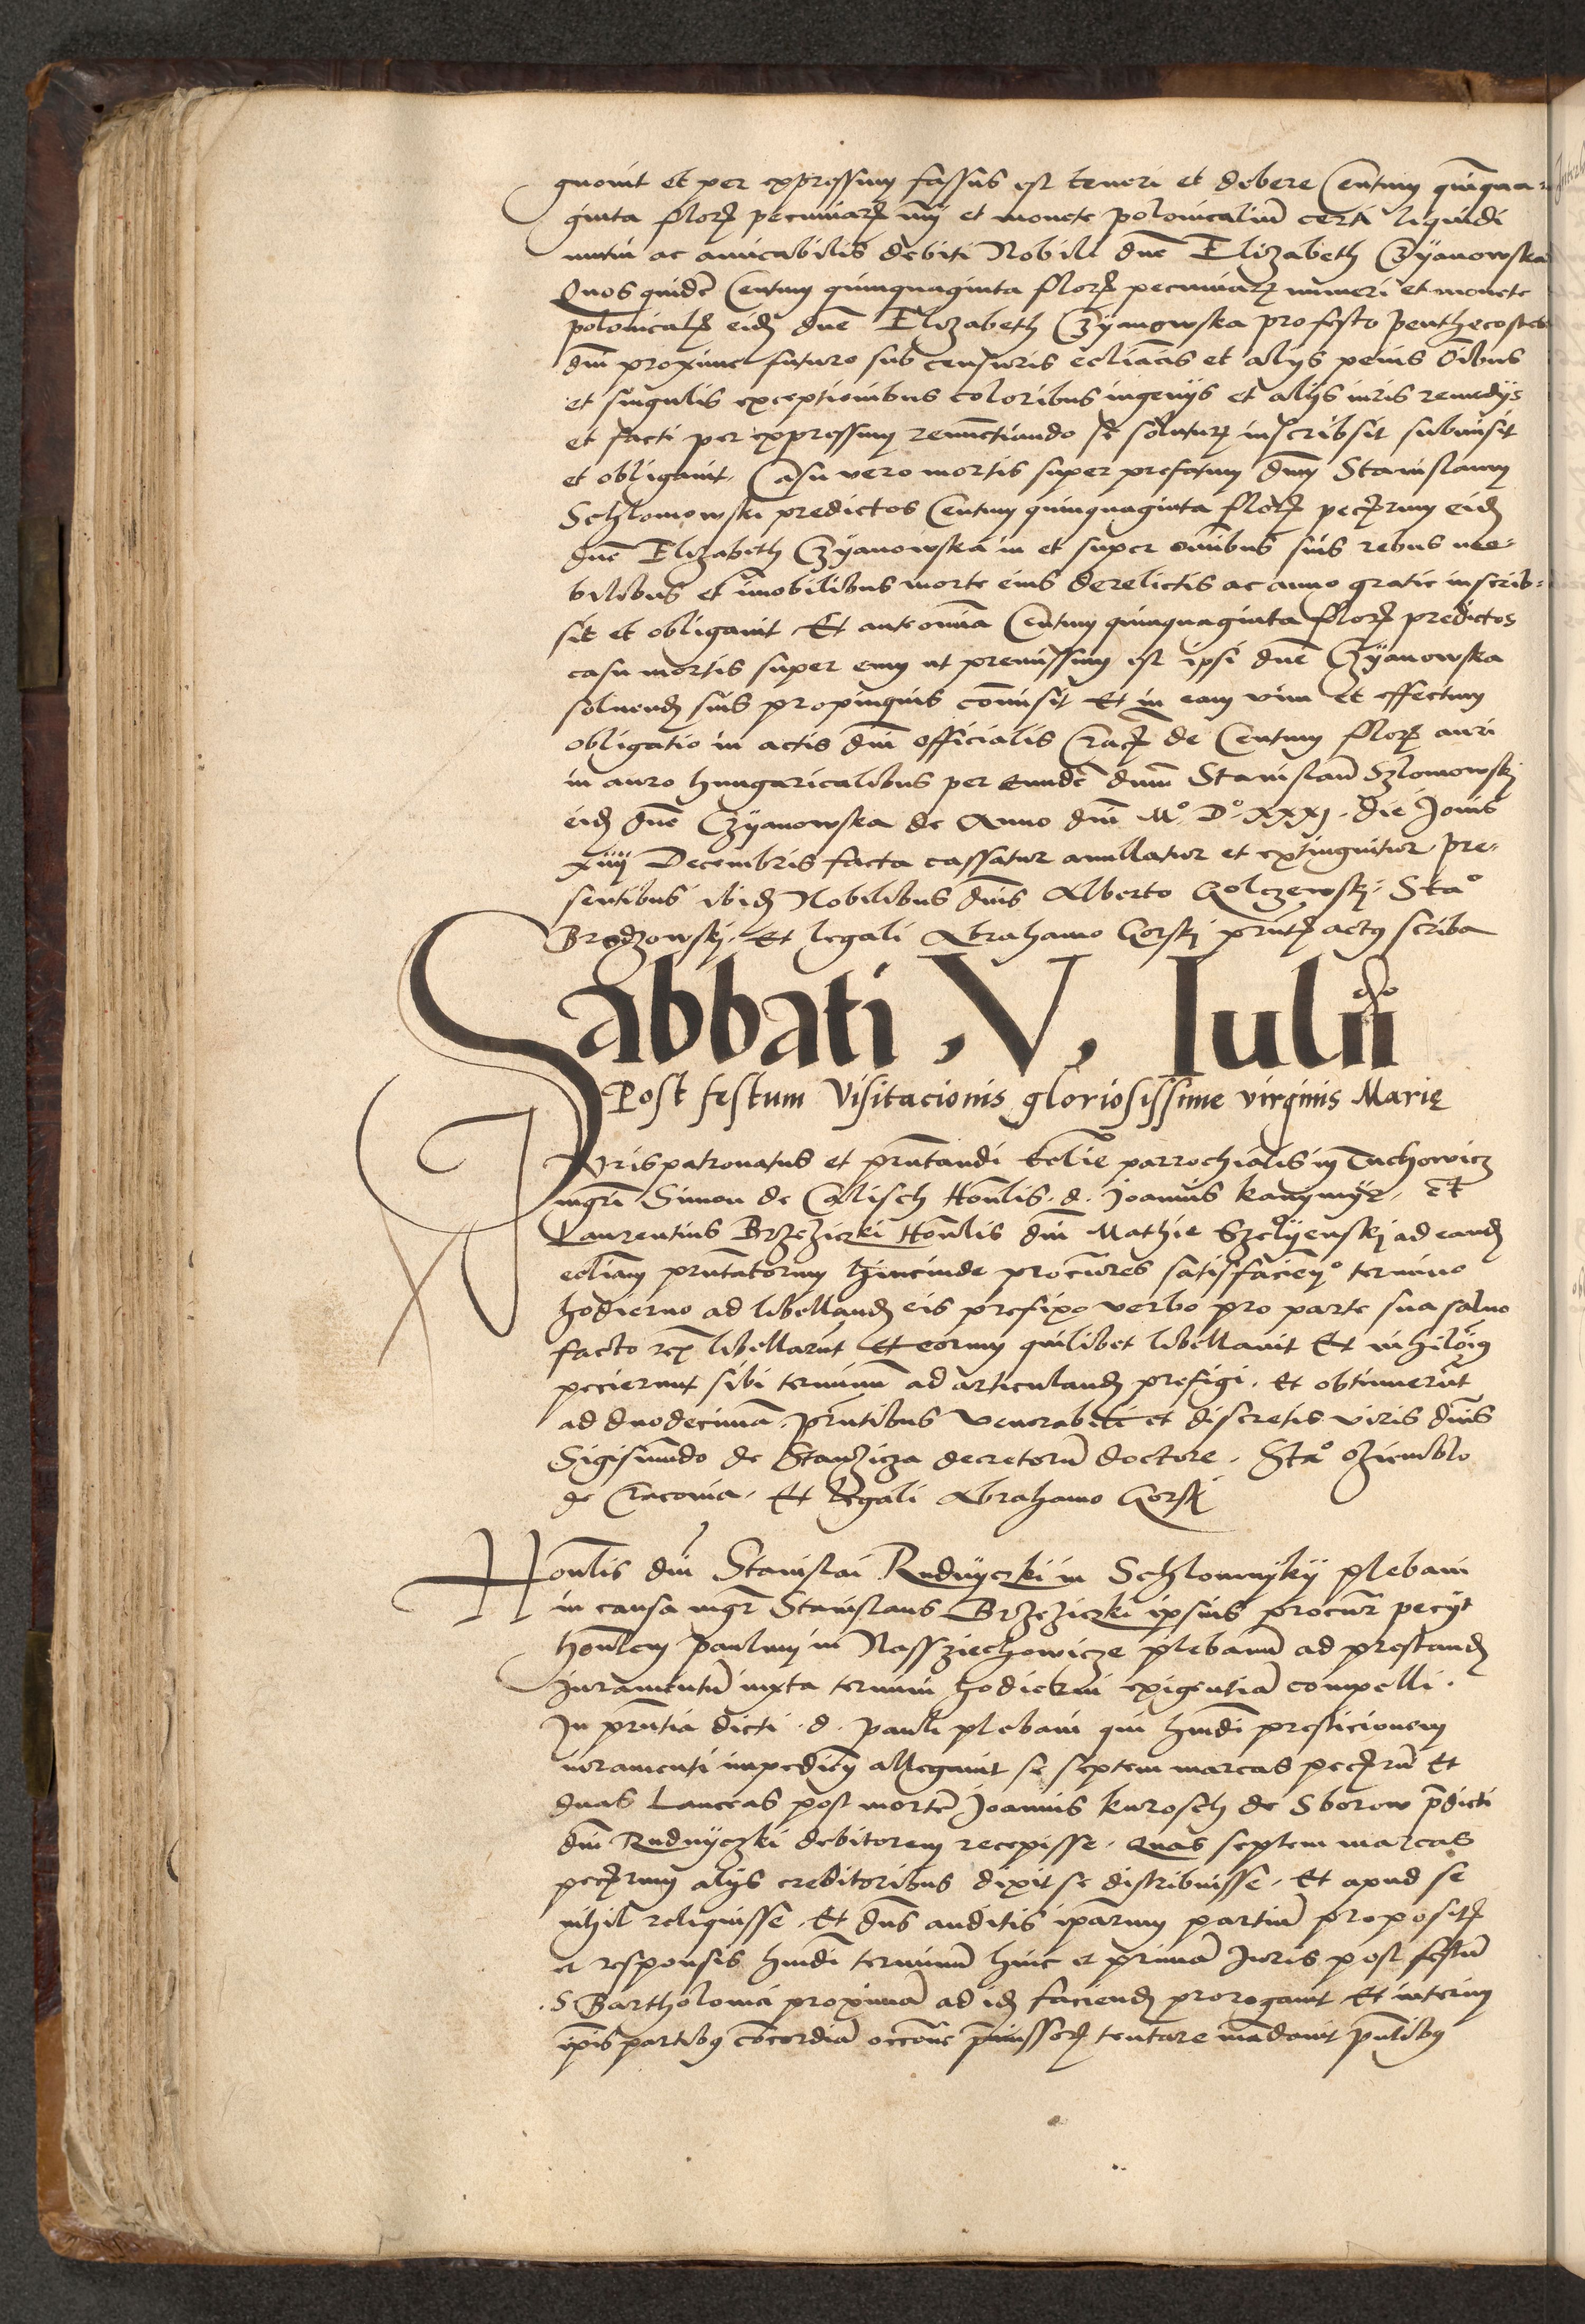 gnovit et per expressum fassus est teneri et debere Centum quinqua
ginta floren pecuniar et monete polonicaliu certi liquidi
mutui ac amicabilis debiti Nobili dne Elizabeth Czyanowska
Quos quide Centum quinquaginta floren pecuniar numeri et monete
polonical eid dne Elizabeth Czyanowska pro festo penthecostes
dni proxime futuro sub censuris ecclias et alys penis oibus
et singulis exceptionibus coloribus ingenys et alys iuris remedys
et facti per expressum renunctiando se solutur inscribsit submisit
et obligavit. Casu vero mortis super prefatum dnm Stanislaum
Schlomowski predictos Centum quinquaginta floren peccrum eid
dne Elizabeth Czyanowska in et super omibus suis rebus mo-
bilibus et imobilibus morte eius derelictis ac anno gratie inscrib-
sit et obligavit Et ante omnia Centum quinquaginta floren predictos
casu mortis super eum ut premissum est ipsi dne Czyanowska
solvend suis propinquis comisit Et in eam vim et effectum
obligatio in actis dni officialis Crac de Centum floren auri
in auro hungaricalibus per eunde dnum Stanislau Szlomowskj
eid dne Czyanowska de Anno dni Mo Do xxxj. die Jovis
xiiij Decembris facta cassatur anullatur et extinguitur pre-
sentibus ibid Nobilibus dnis Alberto Golczewskj. Stao
Brodzowskj. Et legali Abrahamo Gorskj pnt actus scriba
Sabbati, V, Iulii
Post festum Visitacionis gloriosissime virginis Marię
Jurispatronatus et pntandi Eclie parrochialis in Tuchowicz
mgri Simon de Calisch Honlis. d. Joannis kanymyr. et
Laurentius Brzeziczki Honlis dni Mathie Szelyenskj ad eand
ecliam pntatorum hincinde procures satisfacieno termino
hodierno ad libelland eis prefixo verbo pro parte sua salvo
facto libellarut et eorum quilibet libellavit Et nihilois
pecierunt sibi terminu ad articuland prefigi. Et obtinuerut
ad duodecima. pntibus Venerabili et discretis viris dnis
Sigismudo de Stanzicza decretoru doctore. Stao oziemblo
de Cracovia. Et legali Abrahamo Gorskj
Honlis dni Stanislai Rudnyczki in Schlomnyky plebani
in causa mgr Stanislaus Brzeziczki ipsius procur pecyt
honlem paulum in Nassziechowicze plebanu ad prestand
Juramentu iuxta termini hodierni exigentia compelli.
In pntia dicti. d. pauli plebani qui hmdi prestitionem
iuramenti impedien allegavit se septem marcas peccru Et
duas Lanceas post morte Joannis kurosch de Sborow pdicti
dni Rudnyczki debitorem recepisse. Quas septem marcas
peccrum alys creditoribus dixit se distribuisse. Et apud se
nihil reliquisse. Et dns auditis iparum partiu proposit
et responsis hmdi terminu huic et prima Juris post festu
. S Bartholomei proxima ad id faciend prorogavit Et interim
ipis partibus cocordia mandavit pntibus